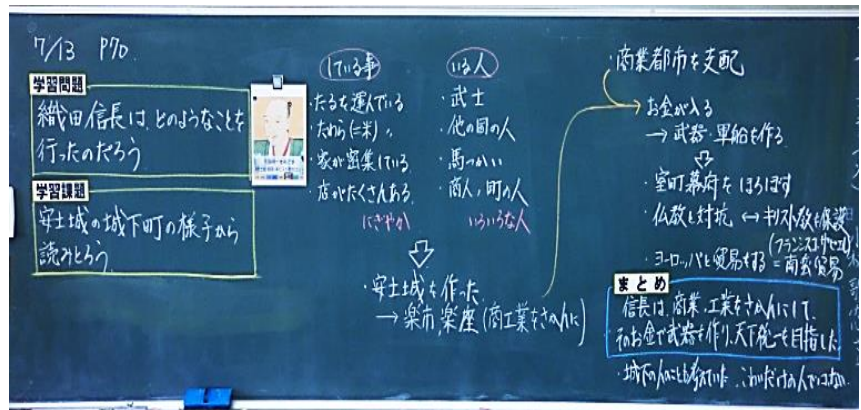 7/13 P70
学習問題
織田信長は、どのようなことを
行ったのだろう
学習課題
安土城の城下町の様子から
読みとろう
している事
・たるを運んでいる
・たわら(=米)〃
・家が密集している
・店がたくさんある
にぎやか
いる人
・武士
・他の国の人
・馬つかい
・商人、町の人
いろいろな人
・安土城を作った
→楽市、楽座(商工業をさかんに)
・商業都市を支配
お金が入る
→武器・軍船を作る
・室町幕府をほろぼす
・仏教と対抗 ↔ キリスト教を保護
(フランシスコ・ザビエル)
・ヨーロッパと貿易をする=南蛮貿易
まとめ
信長は、商業、工業をさかんにして、
そのお金で武器を作り、天下統一を目指した
・城下の人のことも考えていた